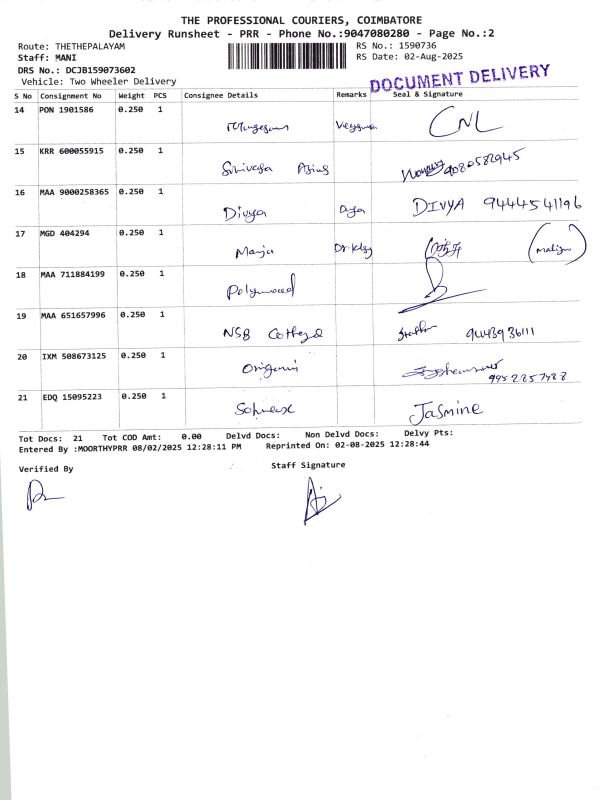 THE PROFESSIONAL COURIERS, COIMBATORE
Delivery Runsheet - PRR - Phone No.:9047080280 - Page No.:2
Route: THETHEPALAYAM
Staff: MANI
DRS No.: DCJB159073602
Vehicle: Two Wheeler Delivery
RS No.: 1590736
RS Date: 02-Aug-2025
DOCUMENT DELIVERY
S No Consignment No Weight PCS Consignee Details Remarks Seal & Signature
14 PON 1901586 0.250 1 CNL
15 KRR 600055915 0.250 1 9080582945
16 MAA 9000258365 0.250 1 Divya Divya DIVYA 9444541196
17 MGD 404294 0.250 1 Manju
18 MAA 711884199 0.250 1 Polymoced
19 MAA 651657996 0.250 1 NSB 9443936111
20 IXM 508673125 0.250 1 Origami
21 EDQ 15095223 0.250 1 Jasmine
Tot Docs: 21 Tot COD Amt: 0.00 Delvd Docs: Non Delvd Docs: Delvy Pts:
Entered By :MOORTHYPRR 08/02/2025 12:28:11 PM Reprinted On: 02-08-2025 12:28:44
Verified By Staff Signature